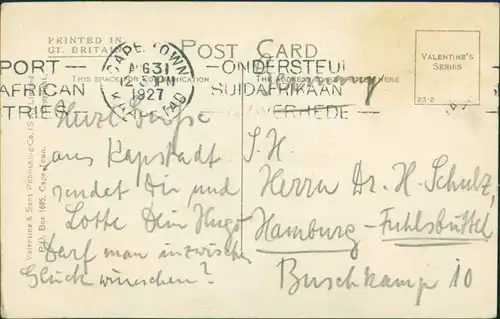 PRINTED IN
GT. BRITAIN
POST CARD
CAPE TOWN
AUG 31
12 PM
1927
KAAPSTAD
PORT—
AFRICAN
TRIES
—ONDERSTEU
SUIDAFRIKAAN
NYWERHEDE
THIS SPACE FOR COMMUNICATION
THE ADDRESS TO BE WRITTEN HERE
Germany
VALENTINE'S
SERIES
23-2
Valentine & Sons Publishing Co.,
P.O. Box 1685, Cape Town.
Herzl. Grüsse
aus Kapstadt
sendet Dir und
Lotte Dein Hugo
Darf man inzwischen
Glück wünschen?
S. H.
Herrn Dr. H. Schulz,
Hamburg-Fuhlsbüttel
Buschkamp 10